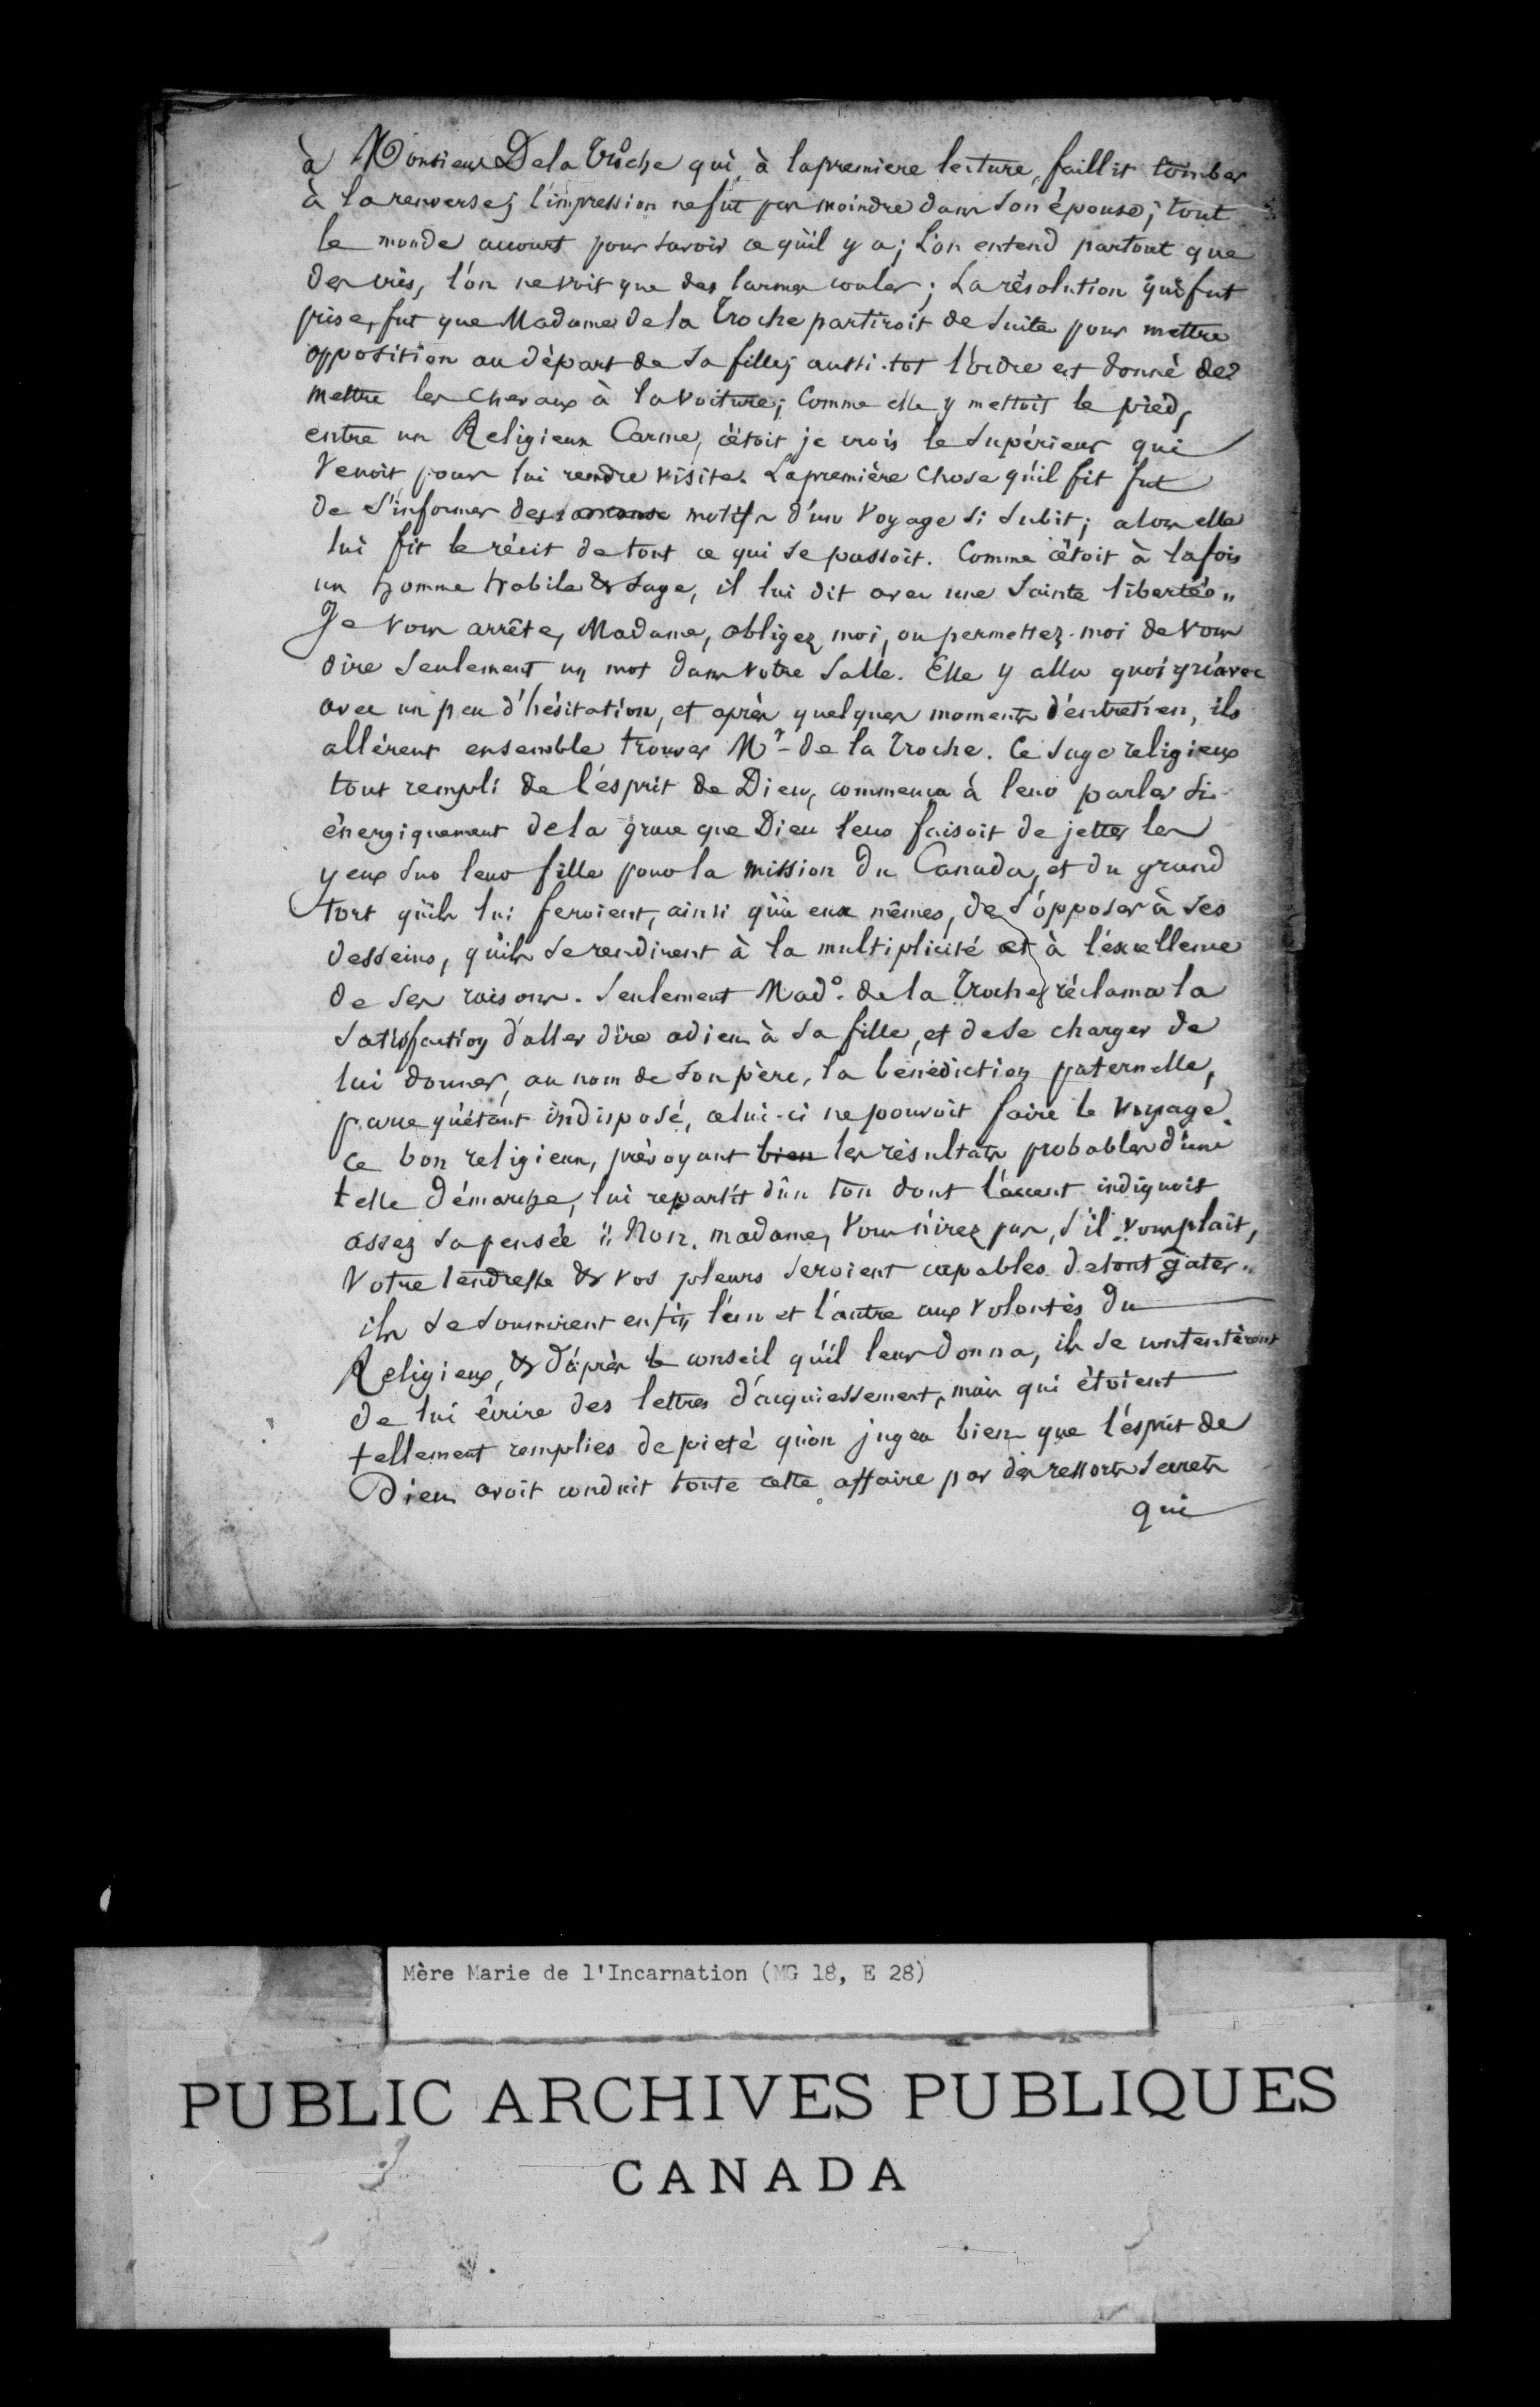 à Monsieur De la Troche qui, à la premiere lecture, faillit tomber
à la renverse; l'impression ne fut pas moindre dans son épouse; tout
le monde accourt pour savoir ce qu'il y a; L'on entend partout que
des cris, l'on ne voit que des larmes couler; La résolution qui fut
prise, fut que Madame de la Troche partiroit de suite pour mettre
opposition au départ de sa fille; aussi-tot l'ordre est donné de
mettre les chevaux à la voiture; Comme elle y mettoit le pied,
entre un Religieux Carme, c'étoit je crois le Supérieur qui
Venoit pour lui rendre visite. La première chose qu'il fit fut
de s'informer des motifs d'un Voyage si subit; alors elle
lui fit le récit de tout ce qui se passoit. Comme c'étoit à la fois
un homme habile & sage, il lui dit avec une Sainte liberté "
Je vous arrête, Madame, obligez moi, ou permettez-moi de vous
dire seulement un mot dans votre Salle. Elle y alla quoiqu'avec
avec un peu d'hésitation, et après quelques moments d'entretien, ils
allèrent ensemble trouver Mr. de la Troche. Ce sage religieux
tout rempli de l'ésprit de Dieu, commença à leur parler si
énergiquement de la grace que Dieu leur faisoit de jetter les
yeux sur leur fille pour la mission du Canada, et du grand
tort qu'ils lui feroient, ainsi qu'à eux mêmes, de s'opposer à ses
desseins, qu'ils se rendirent à la multiplicité et à l'éxcellence
de ses raisons. Seulement Made. de la Troche réclama la
satisfaction d'aller dire adieu à sa fille, et de se charger de
lui donner, au nom de son père, la bénédiction paternelle,
parce qu'étant indisposé, celui-ci ne pouvoit faire le voyage.
Ce bon religieux, prévoyant bien les résultats probables d'une
telle démarche, lui repartit d'un ton dont l'accent indiquoit
assez sa pensée " Non, madame, vous n'irez pas, s'il vous plaît,
Votre tendresse & vos pleurs seroient capables de tout gâter "
ils se soumirent enfin l'un et l'autre aux volontés du
Religieux, & d'après le conseil qu'il leur donna, ils se contentèrent
de lui écrire des lettres d'acquiessement, mais qui étoient
tellement remplies de pieté qu'on jugea bien que l'ésprit de
Dieu avoit conduit toute cette affaire par des ressorts secrets
qui
Mère Marie de l'Incarnation (MG 18, E 28)
PUBLIC ARCHIVES PUBLIQUES
CANADA